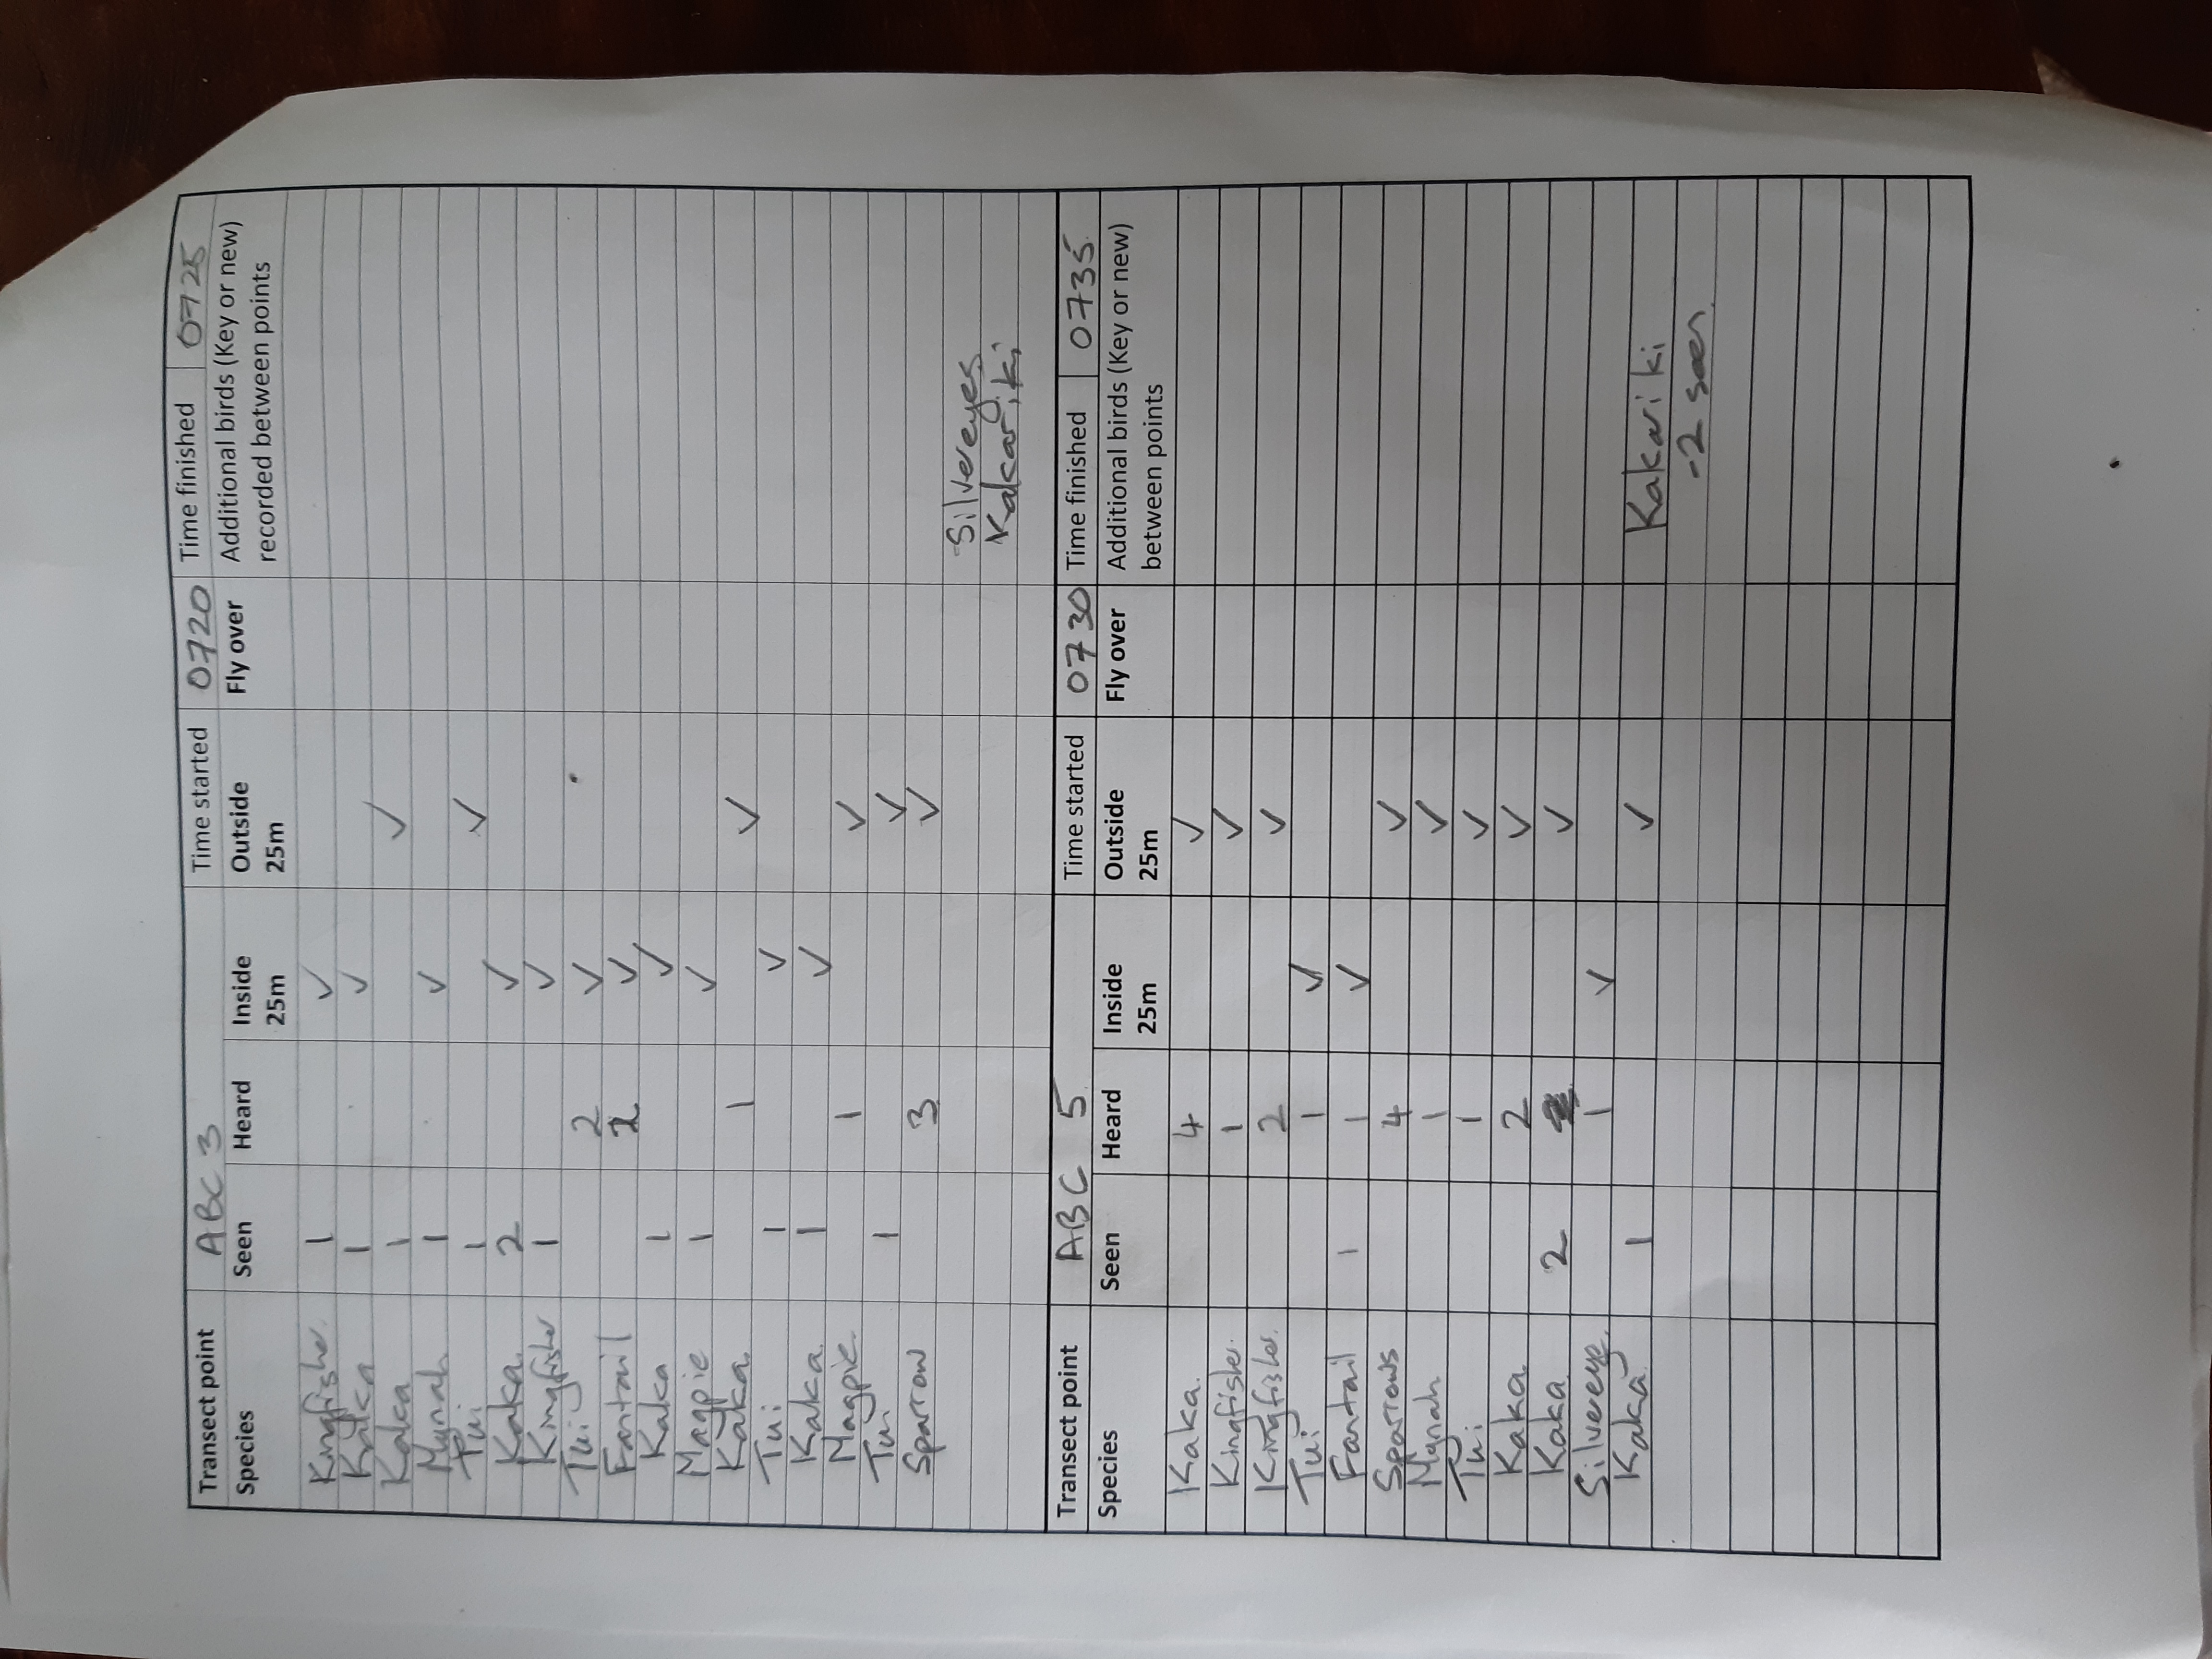 Transect point ABC 3 Time started 0720 Time finished 0725
Species Seen Heard Inside 25m Outside 25m Fly over Additional birds (Key or new) recorded between points
Kingfisher 1 ✓
Kaka 1 ✓
Kaka 1 ✓
Mynah 1 ✓
Tui 1 ✓
Kaka. 2 ✓
Kingfisher 1 ✓
Tui 2 ✓
Fantail ✓
Kaka 1 ✓
Magpie 1 ✓
Kaka. 1 ✓
Tui 1 ✓
Kaka. 1 ✓
Magpie. 1 ✓
Tui 1 ✓
Sparrow 3 ✓
Silvereyes
Kakariki
Transect point ABC 5 Time started 0730 Time finished 0735
Species Seen Heard Inside 25m Outside 25m Fly over Additional birds (Key or new) between points
Kaka. 4 ✓
Kingfisher. 1 ✓
Kingfisher. 2 ✓
Tui 1 ✓
Fantail 1 1 ✓
Sparrows 4 ✓
Mynah 1 ✓
Tui 1 ✓
Kaka 2 ✓
Kaka 2 ✓
Silvereye. 1 ✓
Kaka 1 ✓ Kakariki
-2 seen.